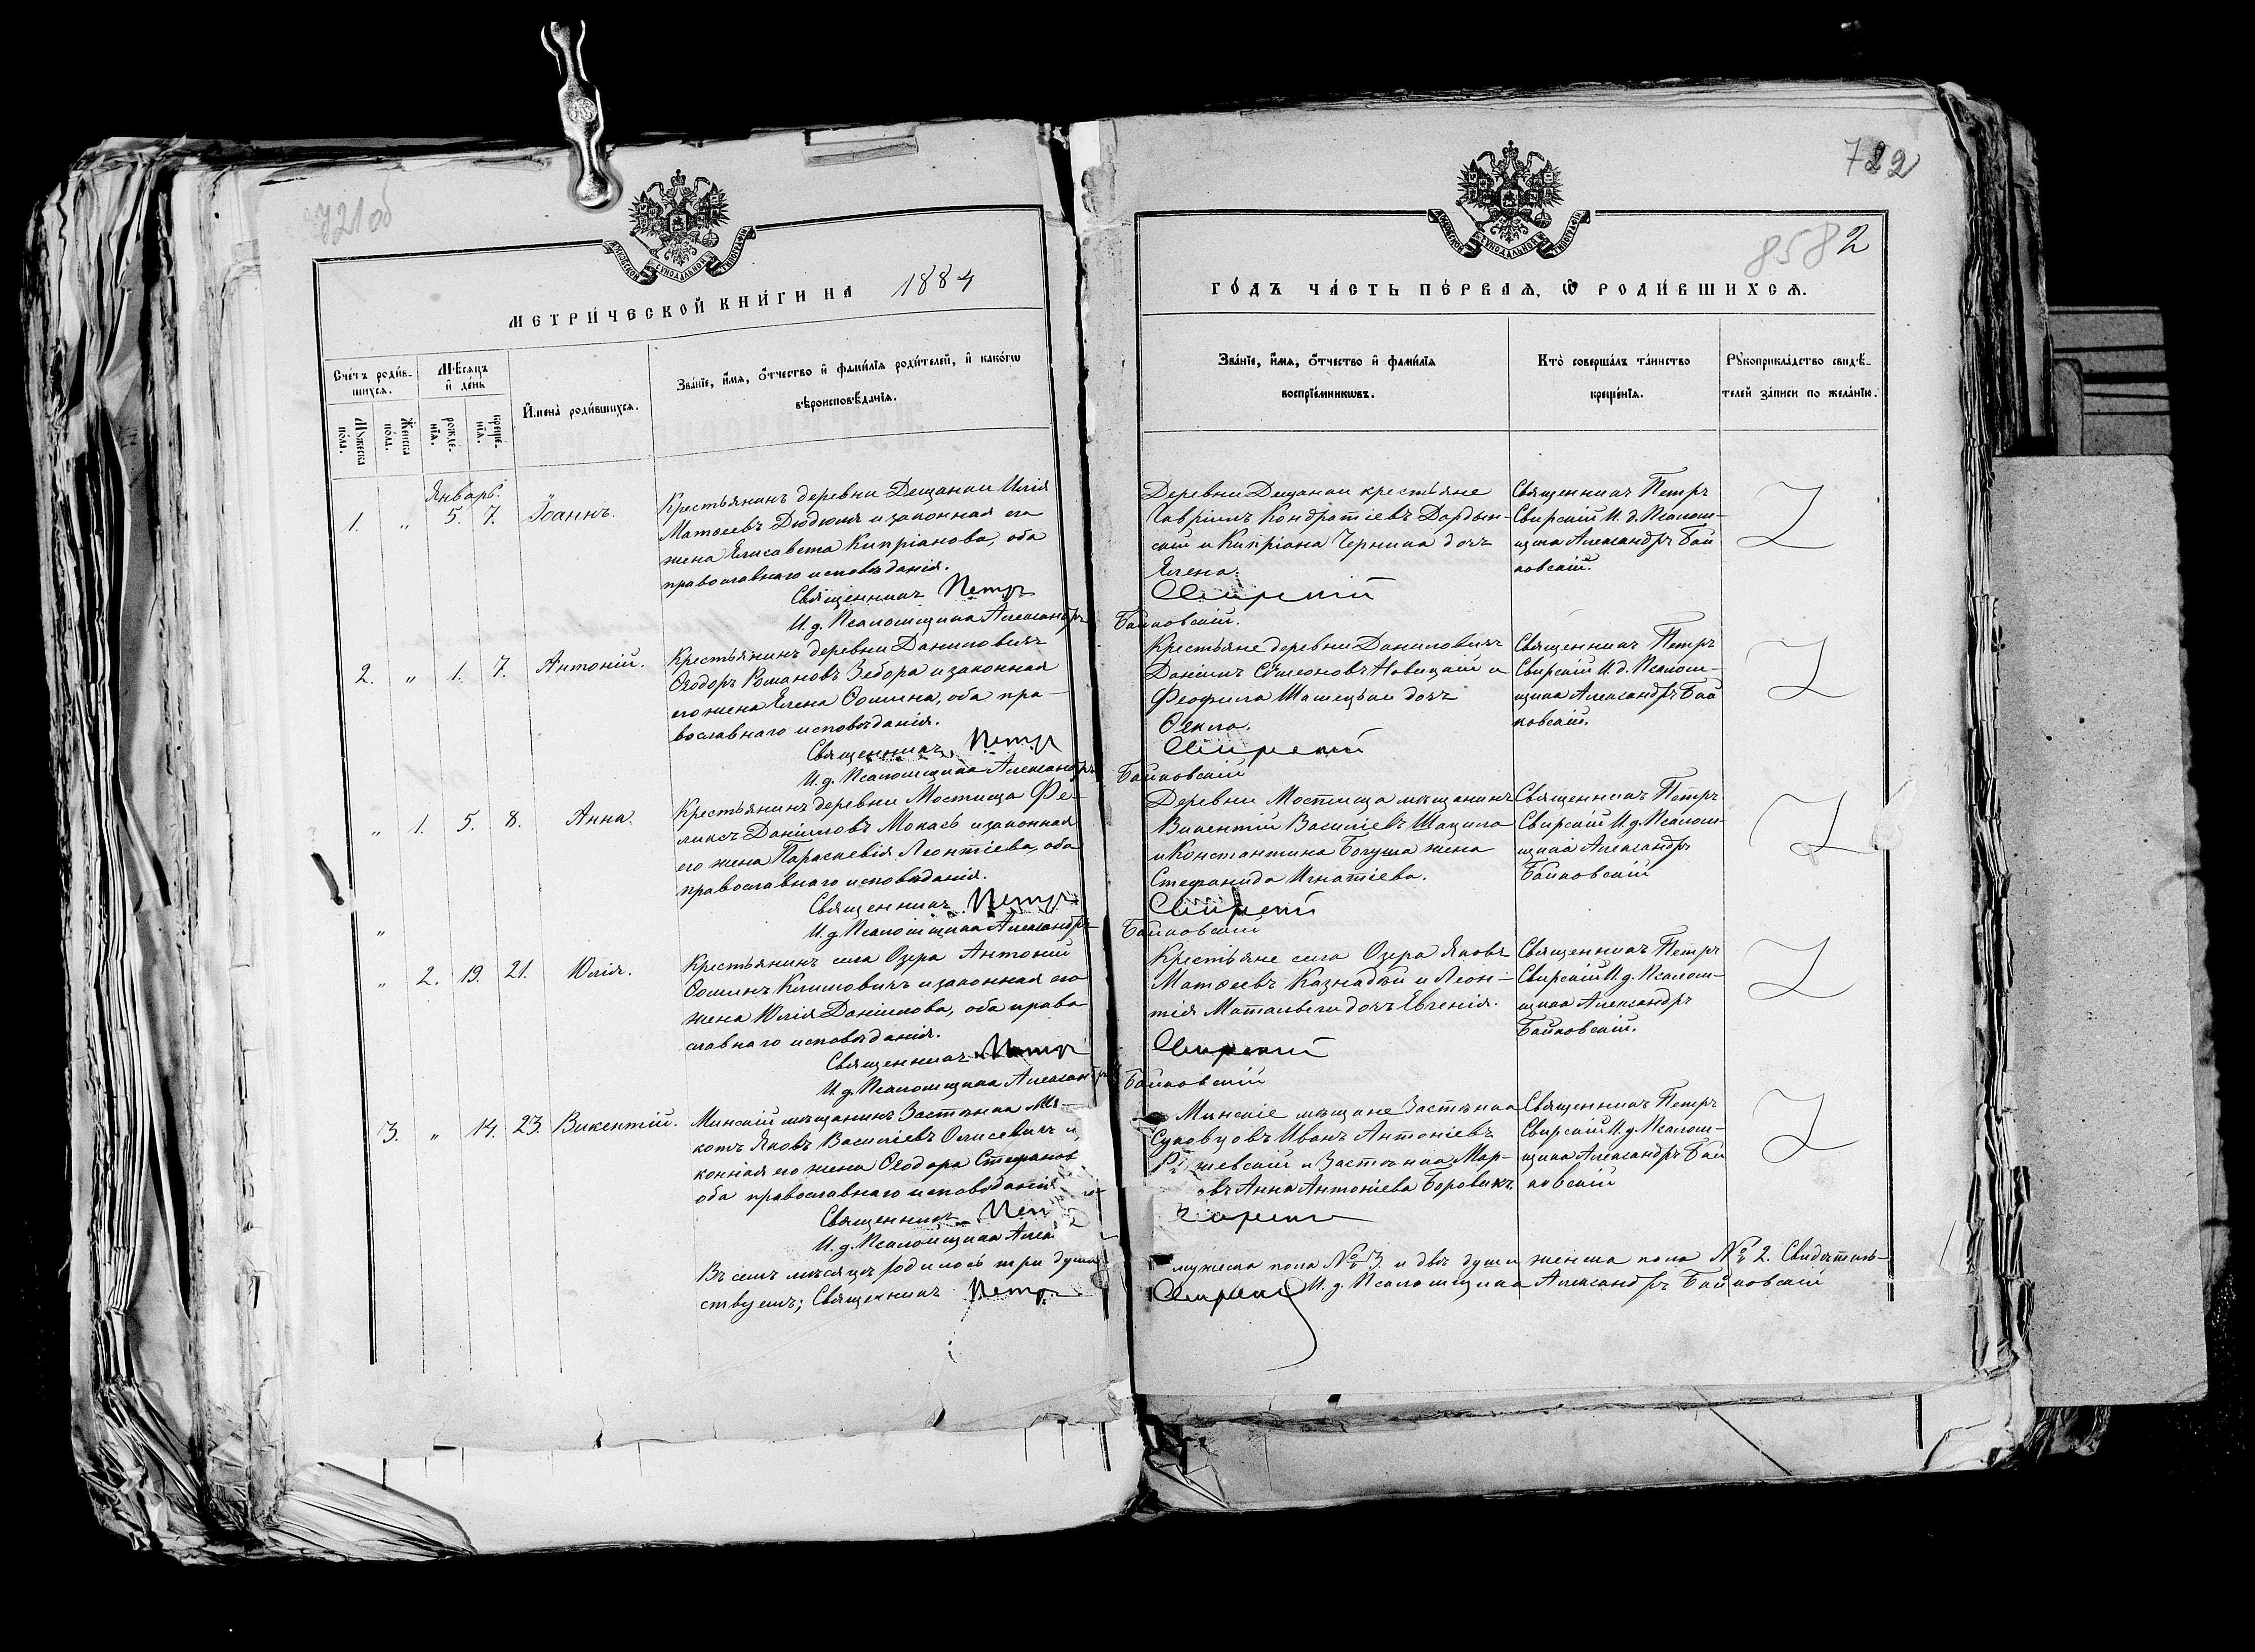 721об
МОСКОВСКОЙ СѴНОДАЛЬНОЙ ТИПОГРАФІИ
МЕТРИ́ЧЕСКОЙ КНИ́ГИ НА 1884
Сче́тъ роди́в-
шихсѧ.
Мѣ́сѧцъ
и҆ де́нь
И҆мена̀ роди́вшихсѧ.
Зва́нїе, и҆́мѧ, ѻ҆́тчество и҆ фами́лїѧ роди́телей, и҆ како́гѡ
вѣроисповѣ́данїѧ.
Мꙋжеска по́ла.
Же́нска по́ла.
рожде́-нїѧ.
креще́-нїѧ.
Январь.
1. „ 5. 7. Іоаннъ.
Крестьянинъ деревни Дещанки Илія
Матѳеевъ Дюдюля и законная его
жена Елисавета Кипріанова, оба
православнаго исповѣданія.
Священникъ Петръ
И. д. Псаломщика Александръ
2. „ 1. 7. Антоній.
Крестьянинъ деревни Даниловичъ
Ѳеодоръ Романовъ Зебора и законная
его жена Елена Ѳомина, оба пра-
вославнаго исповѣданія.
Священникъ Петр
И. д. Псаломщика Александръ
„ 1. 5. 8. Анна.
Крестьянинъ деревни Мостища Фе-
ликсъ Даніиловъ Мокась и законная
его жена Параскевія Леонтіева, оба
православнаго исповѣданія.
Священникъ Петръ
И. д. Псаломщика Александръ
„
„ 2. 19. 21. Юлія.
Крестьянинъ села Озера Антоній
Ѳоминъ Климовичъ и законная его
жена Юлія Даніилова, оба право
славнаго исповѣданія.
Священникъ Петръ
И. д. Псаломщика Александръ
3. „ 14. 23. Викентій.
Минскій мѣщанинъ Застѣнка Ма-
котъ Яковъ Василіевъ Олисевичъ и
конная его жена Ѳеодора Стефанов
оба православнаго исповѣданія
Священникъ Пет
И. д. Псаломщика Алек
Въ семъ мѣсяцѣ родилось три души
ствуемъ; Священникъ Петръ
722
858 2
МОСКОВСКОЙ СѴНОДАЛЬНОЙ ТИПОГРАФІИ
ГО́ДЪ ЧА́СТЬ ПЕ́РВАѦ, Ѡ҆ РОДИ́ВШИХСѦ.
Зва́нїе, и҆́мѧ, ѻ҆́тчество и҆ фами́лїѧ
воспрїе́мникѡвъ.
Кто̀ соверша́лъ та́инство
креще́нїѧ.
Рꙋкоприкла́дство свидѣ́-
телей за́писи по жела́нїю.
Деревни Дещанки крестьяне
Гавріилъ Кондратіевъ Дардын-
скій и Кипріана Черника дочь
Елена.
Свирскій
Байковскій.
Священникъ Петръ
Свирскій И. д. Псалом-
щика Александръ Бай
ковскій.
Крестьяне деревни Даниловичъ
Даніилъ Сѵмеоновъ Новицкій и
Феофила дочь
Ѳекла.
Свирскій
Байковскій
Священникъ Петръ
Свирскій И. д. Псалом-
щика Александръ Бай
ковскій.
Деревни Мостища мѣщанинъ
Викентій Василіевъ Шацило
и Константина Богуша жена
Стефанида Игнатіева.
Свирскій
Байковскій
Священникъ Петръ
Свирскій И. д. Псалом-
щика Александръ
Байковскій
Крестьяне села Озера Яковъ
Матѳеевъ Казнадѣй и Леон-
тія дочь Евгенія.
Свирскій
Байковскій
Священникъ Петръ
Свирскій И. д. Псалом-
щика Александръ
Байковскій.
Минскіе мѣщане Застѣнка
Суковцовъ Иванъ Антоніевъ
и Застѣнка Мар-
овъ Анна Антоніева Боровикъ
Свирскій
Священникъ Петръ
Свирскій И. д. Псалом-
щика Александръ Бай
ковскій
мужеска пола № 3. и двѣ души женска пола № 2. Свидѣтель-
Свирскій И. д. Псаломщика Александръ Байковскій